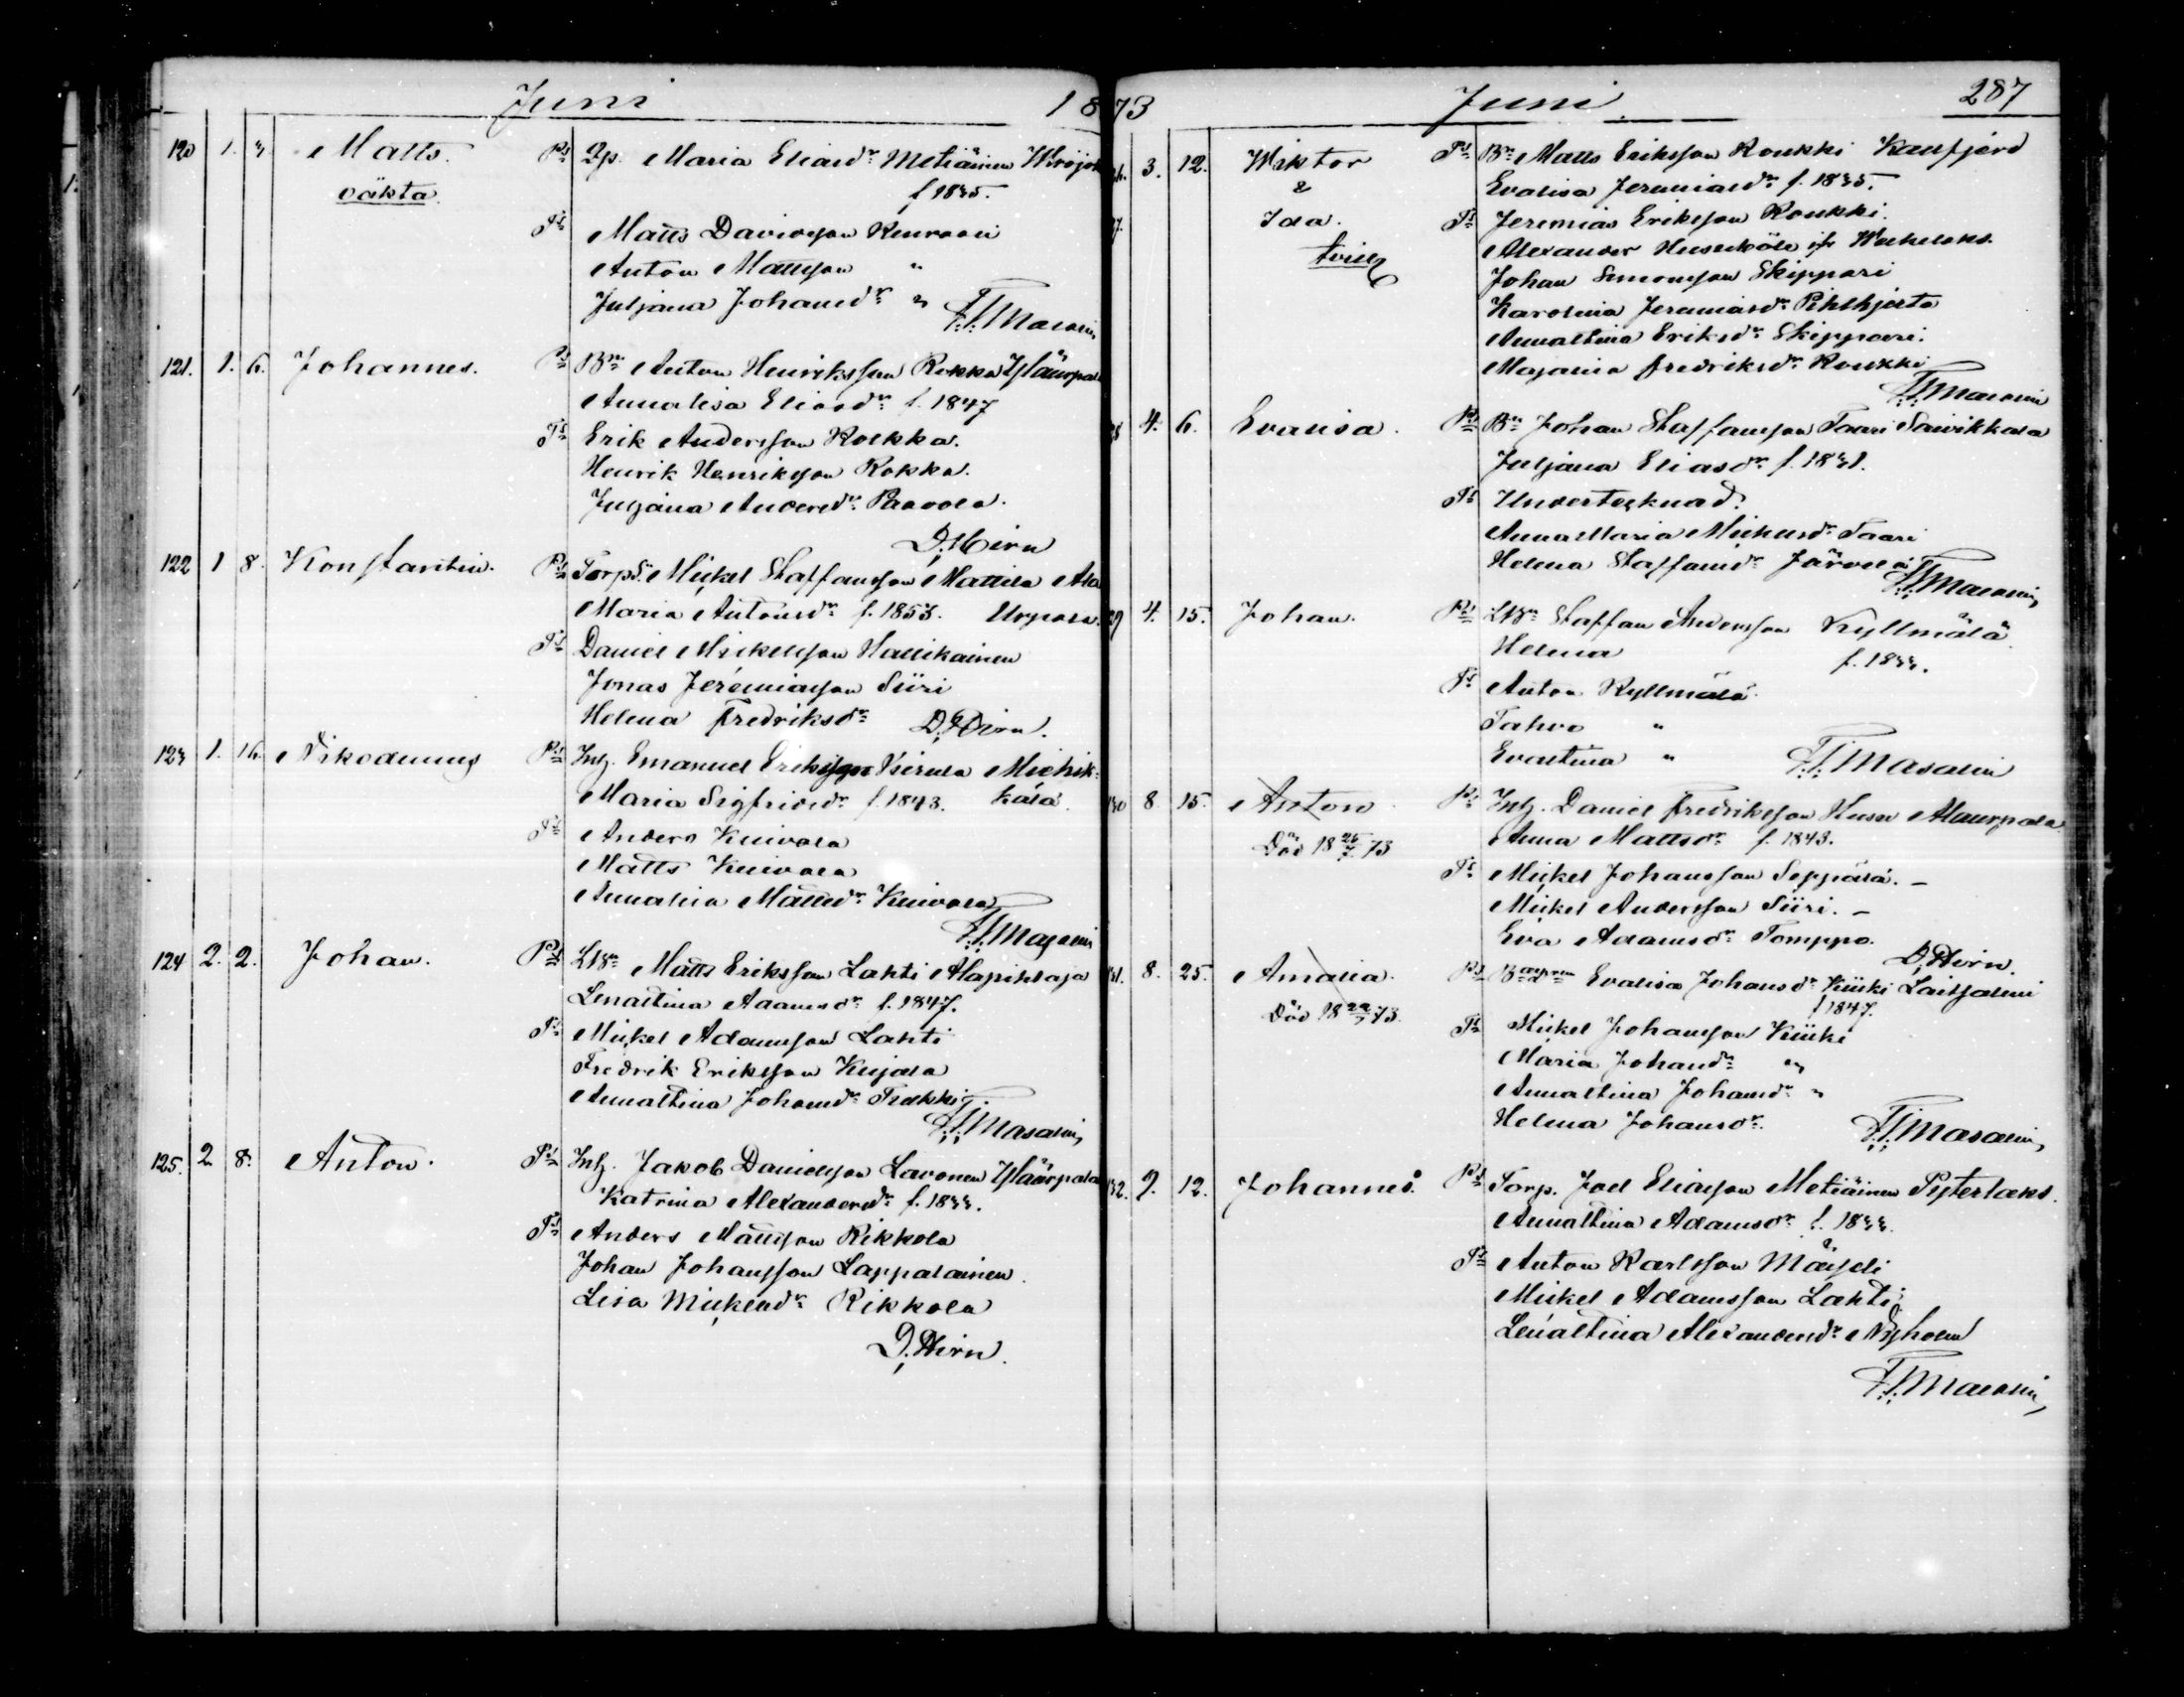 Juni 1873
120 1. 3 Matts. Prs Qp. Maria Eliasdr Metiäinen Wirojok
oäkta. f 1835.
Ts Matts Davidsson
Anton Mattsson "
Juljana Johansdr " F. F. Masalin
121. 1. 6. Johannes. Prs Bn Anton Henriksson Rokka Yläurpala
Annalisa Eliasdr f. 1847
Ts Erik Andersson Rokka.
Henrik Henriksson Rokka.
Juljana Andersdr Paavola.
D. Hirn
122 1 8. Konstantin. Prs Torps. Mickel Staffansson Mattila Ala
Maria Antonsdr f. 1853. Urpala.
Ts Daniel Mickelsson Hallikainen
Jonas Jeremiasson Siiri
Helena Fredriksdr D. Hirn.
123 1. 16. Nikodemus Prs Inh. Emanuel Eriksson Miehik-
Maria Sigfridsdr f. 1843. kälä.
Ts Anders Kuivala
Matts Kuivala
Annalisa Mattsdr Kuivala
F. F. Masalin
124 2. 2. Johan. Prs LBn Matts Eriksson Lahti Alapihlaja
Lenastina Adamsdr f. 1847.
Ts Mickel Adamsson Lahti
Fredrik Eriksson Kujala
Annastina Johansdr
F. F. Masalin
125. 2 8. Anton. Prs Inh. Jakob Danielsson Lavonen Yläurpala
Katrina Alexandersdr f. 1833.
Ts Anders Mattsson Rikkola
Johan Johansson Lappalainen.
Lisa Mickelsdr Rikkola
D. Hirn.
Juni 287
3. 12. Wiktor Prs Bn Matts Eriksson Roukki
& Evalisa Jeremiasdr f. 1835.
Ida. Ts Jeremias Eriksson Roukki.
tvill Alexander
Johan Simonsson Skippari
Karolina Jeremiasdr
Annastina Eriksdr Skippari.
Majania Fredriksdr Roukki
F. F. Masalin
4. 6. Evalisa. Prs Bn Johan Staffansson Taari Säivikkälä
Juljana Eliasdr f. 1831.
Ts Undertecknad.
Annamaria Mickelsdr Taari
Helena Staffansdr Järvelä
F. F. Masalin
4. 15. Johan. Prs LBn Staffan Andersson Kyllmälä
Helena f. 1833.
Ts Anton Kyllmälä.
Tahvo "
Evastina " F. F. Masalin
130 8. 15. Anton Prs Inh. Daniel Fredriksson Husu Alaurpala
Död 18 26/7 73 Anna Mattsdr f. 1843.
Ts Mickel Johansson Seppälä. –
Mickel Andersson Siiri. –
Eva Adamsdr Tomppo.
D. Hirn.
131. 8. 25. Amalia. Prs Evalisa Johansdr Kiiki Laitsalmi
Död 18 22/7 73. f 1847.
Ts Mickel Johansson Kiiki
Maria Johansdr "
Annastina Johansdr "
Helena Johansdr. F. F. Masalin
132. 9. 12. Johannes. Prs Torp. Joel Eliasson Metiäinen Pyterlaks.
Annastina Adamsdr f. 1833.
Ts Anton Karlsson
Mickel Adamsson Lahti
Lenastina Alexandersdr Nyholm
F. F. Masalin